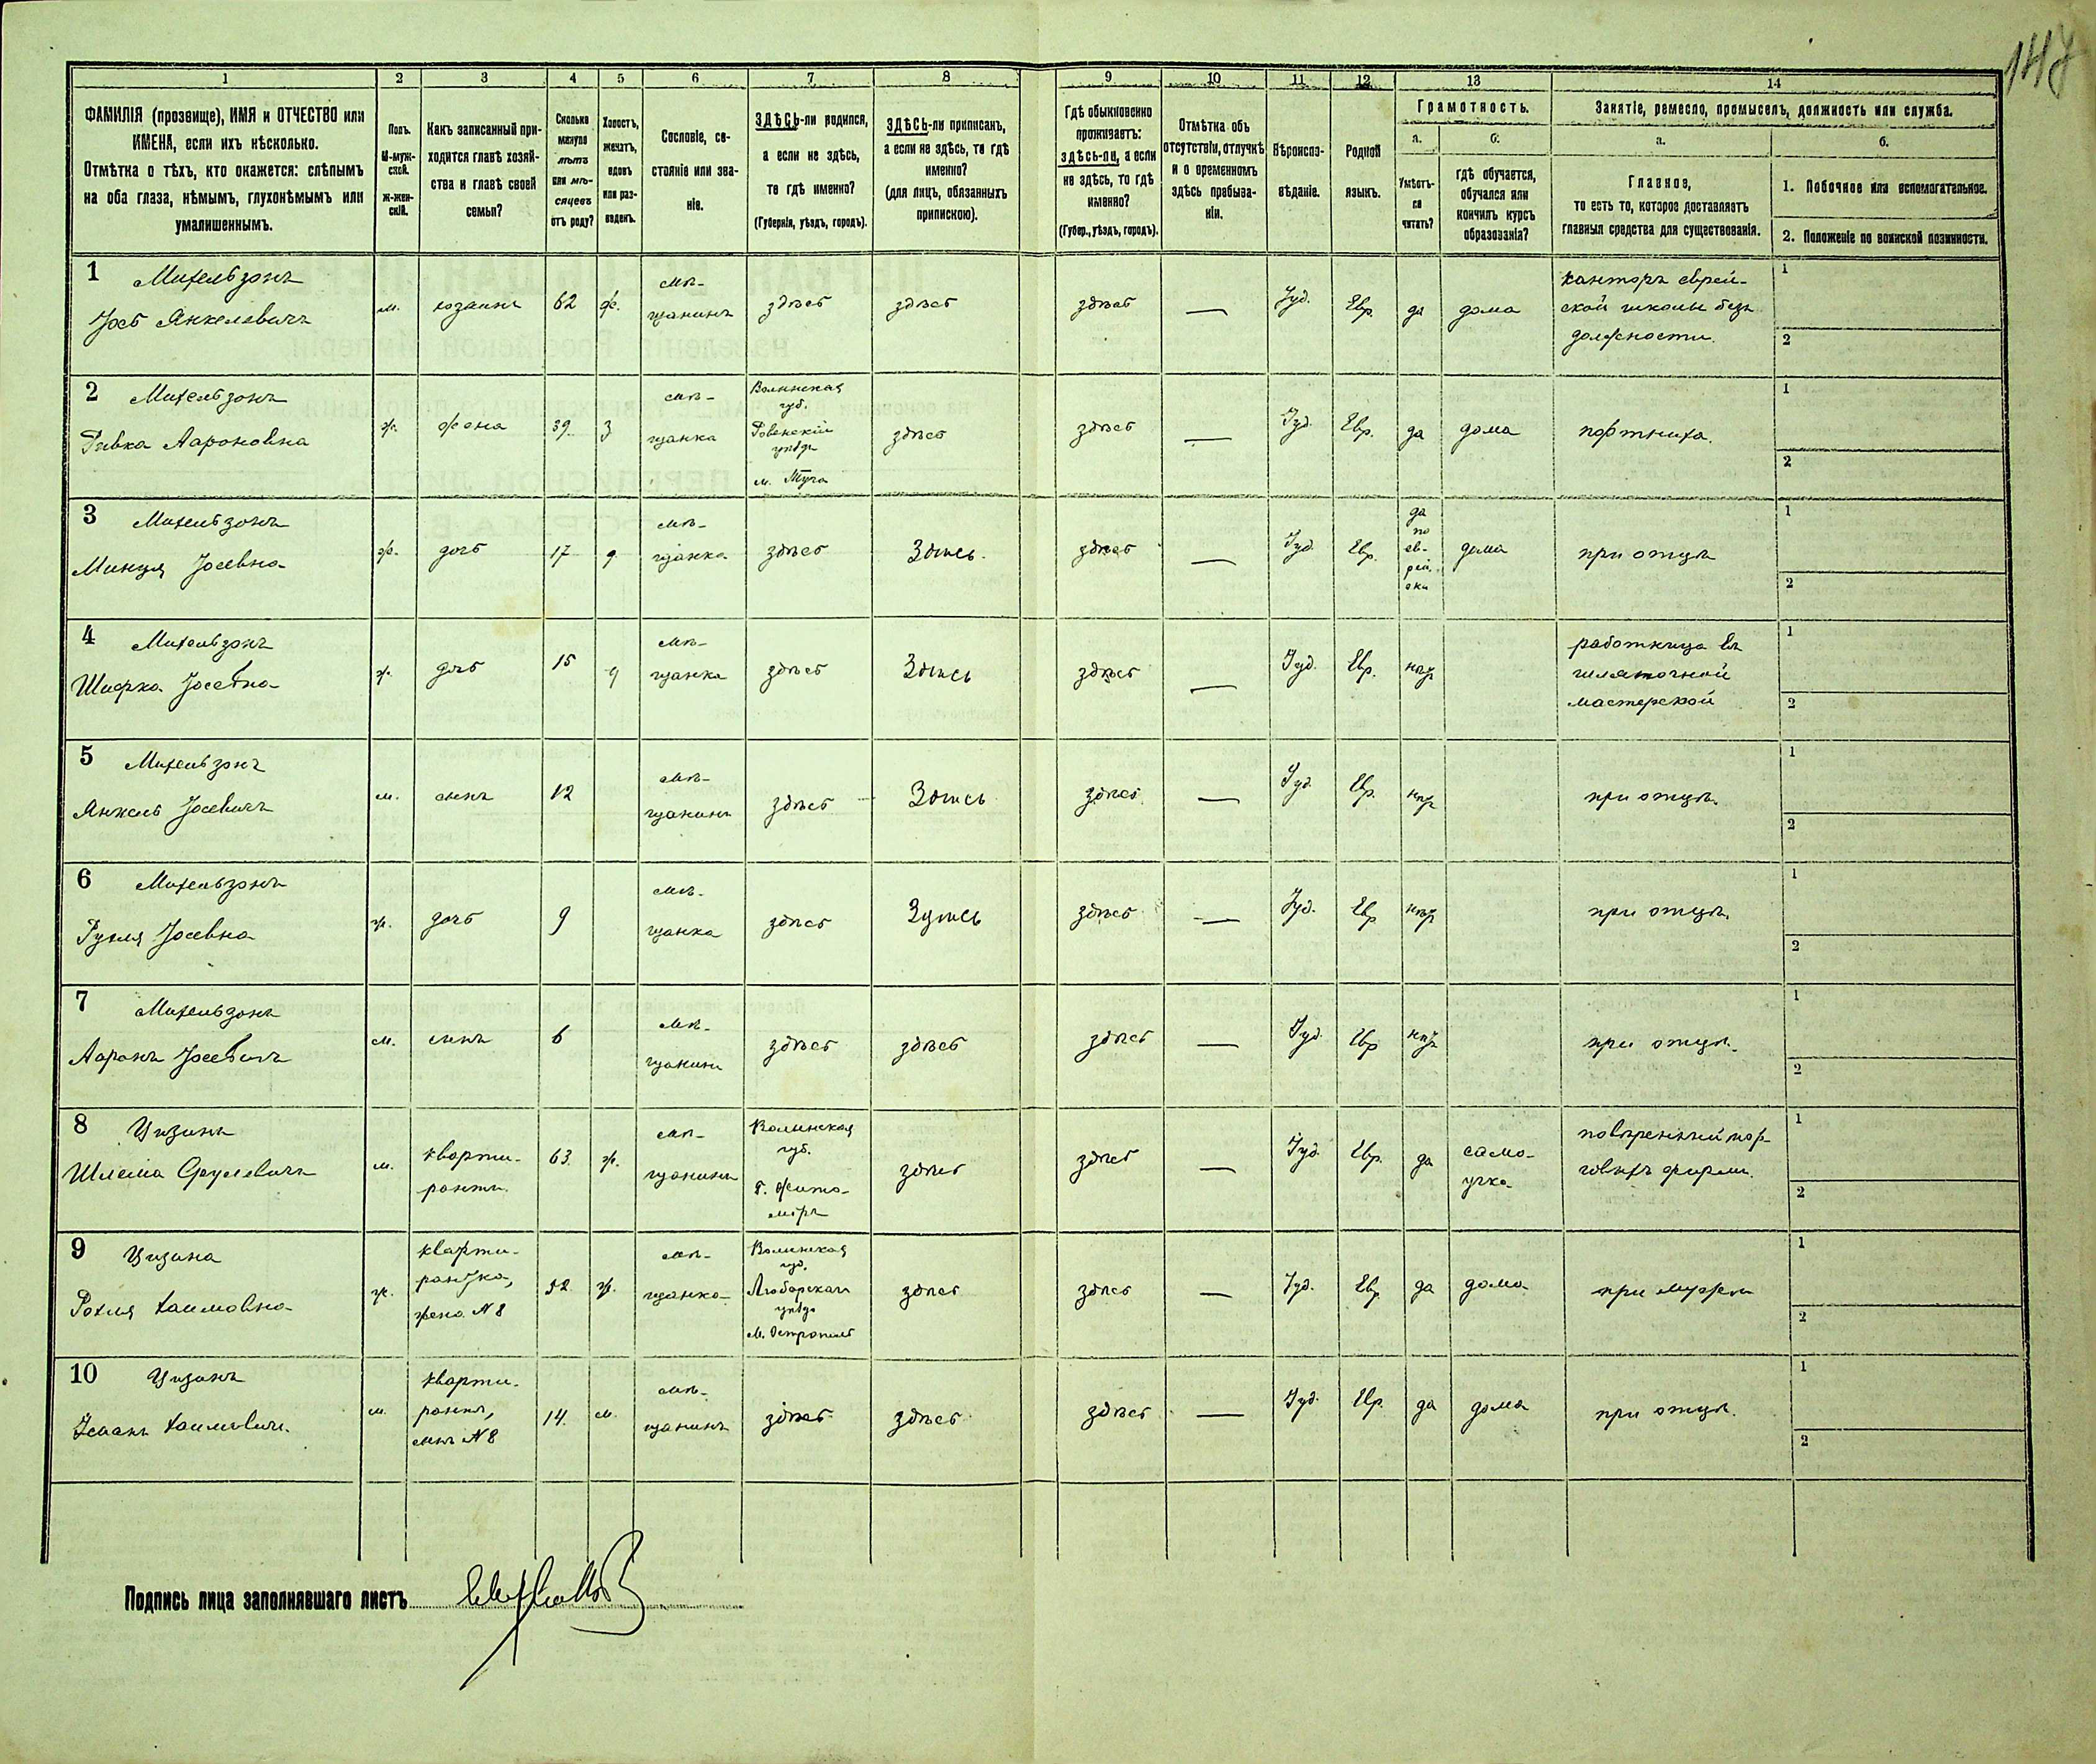 147
1 2 3 4 5 6 7 8 9 10 11 12 13 14
ФАМИЛІЯ (прозвище), ИМЯ и ОТЧЕСТВО или
ИМЕНА, если ихъ нѣсколько.
Отмѣтка о тѣхъ, кто окажется: слѣпымъ
на оба глаза, нѣмымъ, глухонѣмымъ или
умалишеннымъ.
Полъ.
М-муж-
ской.
Ж-жен-
скій.
Какъ записанный при-
ходится главѣ хозяй-
ства и главѣ своей
семьи?
Сколько
минуло
лѣтъ
или мѣ-
сяцевъ
отъ роду?
Холостъ,
женатъ,
вдовъ
или раз-
веденъ.
Сословіе, со-
стояніе или зва-
ніе.
ЗДѢСЬ-ли родился,
а если не здѣсь,
то гдѣ именно?
(Губернія, уѣздъ, городъ).
ЗДѢСЬ-ли приписанъ,
а если не здѣсь, то гдѣ
именно?
(для лицъ, обязанныхъ
припискою).
Гдѣ обыкновенно
проживаетъ:
здѣсь-ли, а если
не здѣсь, то гдѣ
именно?
(Губер., уѣздъ, городъ).
Отмѣтка объ
отсутствіи, отлучкѣ
и о временномъ
здѣсь пребыва-
ніи.
Вѣроиспо-
вѣданіе.
Родной
языкъ.
Грамотность.
а.
Умѣетъ-
ли
читать?
б.
гдѣ обучается,
обучался или
кончилъ курсъ
образованія?
Занятіе, ремесло, промыселъ, должность или служба.
а.
Главное,
то есть то, которое доставляетъ
главныя средства для существованія.
б.
1. Побочное или вспомогательное.
2. Положеніе по воинской повинности.
1 Михельзонъ
Іосъ Янкелевичъ
м.
хозаинъ
62
ж.
мѣ-
щанинъ
здѣсь
здѣсь
здѣсь
—
Іуд.
Евр.
да
дома
канторъ еврей-
ской школы безъ
должности.
1
2
2 Михельзонъ
Ривка Аароновна
ж.
жена
39
з
мѣ-
щанка
Волынская
губ.
Ровенскій
уѣздъ
здѣсь
здѣсь
—
Іуд.
Евр.
да
дома
портниха.
1
2
3 Михельзонъ
Минця Іосевна
ж.
дочь
17
д
мѣ-
щанка
здѣсь
Здѣсь.
здѣсь
—
Іуд.
Евр.
да
по
ев-
рей-
ски
дома
при отцѣ
1
2
4 Михельзонъ
Шифра Іосевна
ж.
дочь
15
д
мѣ-
щанка
здѣсь
Здѣсь
здѣсь
—
Іуд.
Евр.
нѣт
работница въ
шляпочной
мастерской
1
2
5 Михельзонъ
Янкель Іосевичъ
м.
сынъ
12
мѣ-
щанинъ
здѣсь
Здѣсь
здѣсь
—
Іуд.
Евр.
нѣт
при отцѣ.
1
2
6 Михельзонъ
Рухля Іосевна
ж.
дочь
9
мѣ-
щанка
здѣсь
Здѣсь
здѣсь
—
Іуд.
Евр
нѣт
при отцѣ.
1
2
7 Михельзонъ
Ааронъ Іосевичъ
м.
сынъ
6
мѣ-
щанинъ
здѣсь
здѣсь
здѣсь
—
Іуд.
Евр
нѣт
при отцѣ.
1
2
8 Цизинъ
Шлема Срулевичъ
м.
кварти-
рантъ.
63
ж.
мѣ-
щанинъ
Волынская
губ.
г. Жито-
міръ
здѣсь
здѣсь
—
Іуд.
Евр.
да
само-
учка
повѣренный тор-
говыхъ фирмъ.
1
2
9 Цизина
Рохля Хаимовна
ж.
кварти-
рантка,
жена №8
52
ж.
мѣ-
щанка
Волынская
губ.
уѣздъ
м. Острополь
здѣсь
здѣсь
—
Іуд.
Евр
да
дома
при мужѣ
1
2
10 Цизинъ
Исаакъ Хаимовичъ.
м.
кварти-
рантъ,
сынъ №8
14.
м.
мѣ-
щанинъ
здѣсь
здѣсь
здѣсь
—
Іуд.
Евр.
да
дома
при отцѣ.
1
2
Подпись лица заполнявшаго листъ